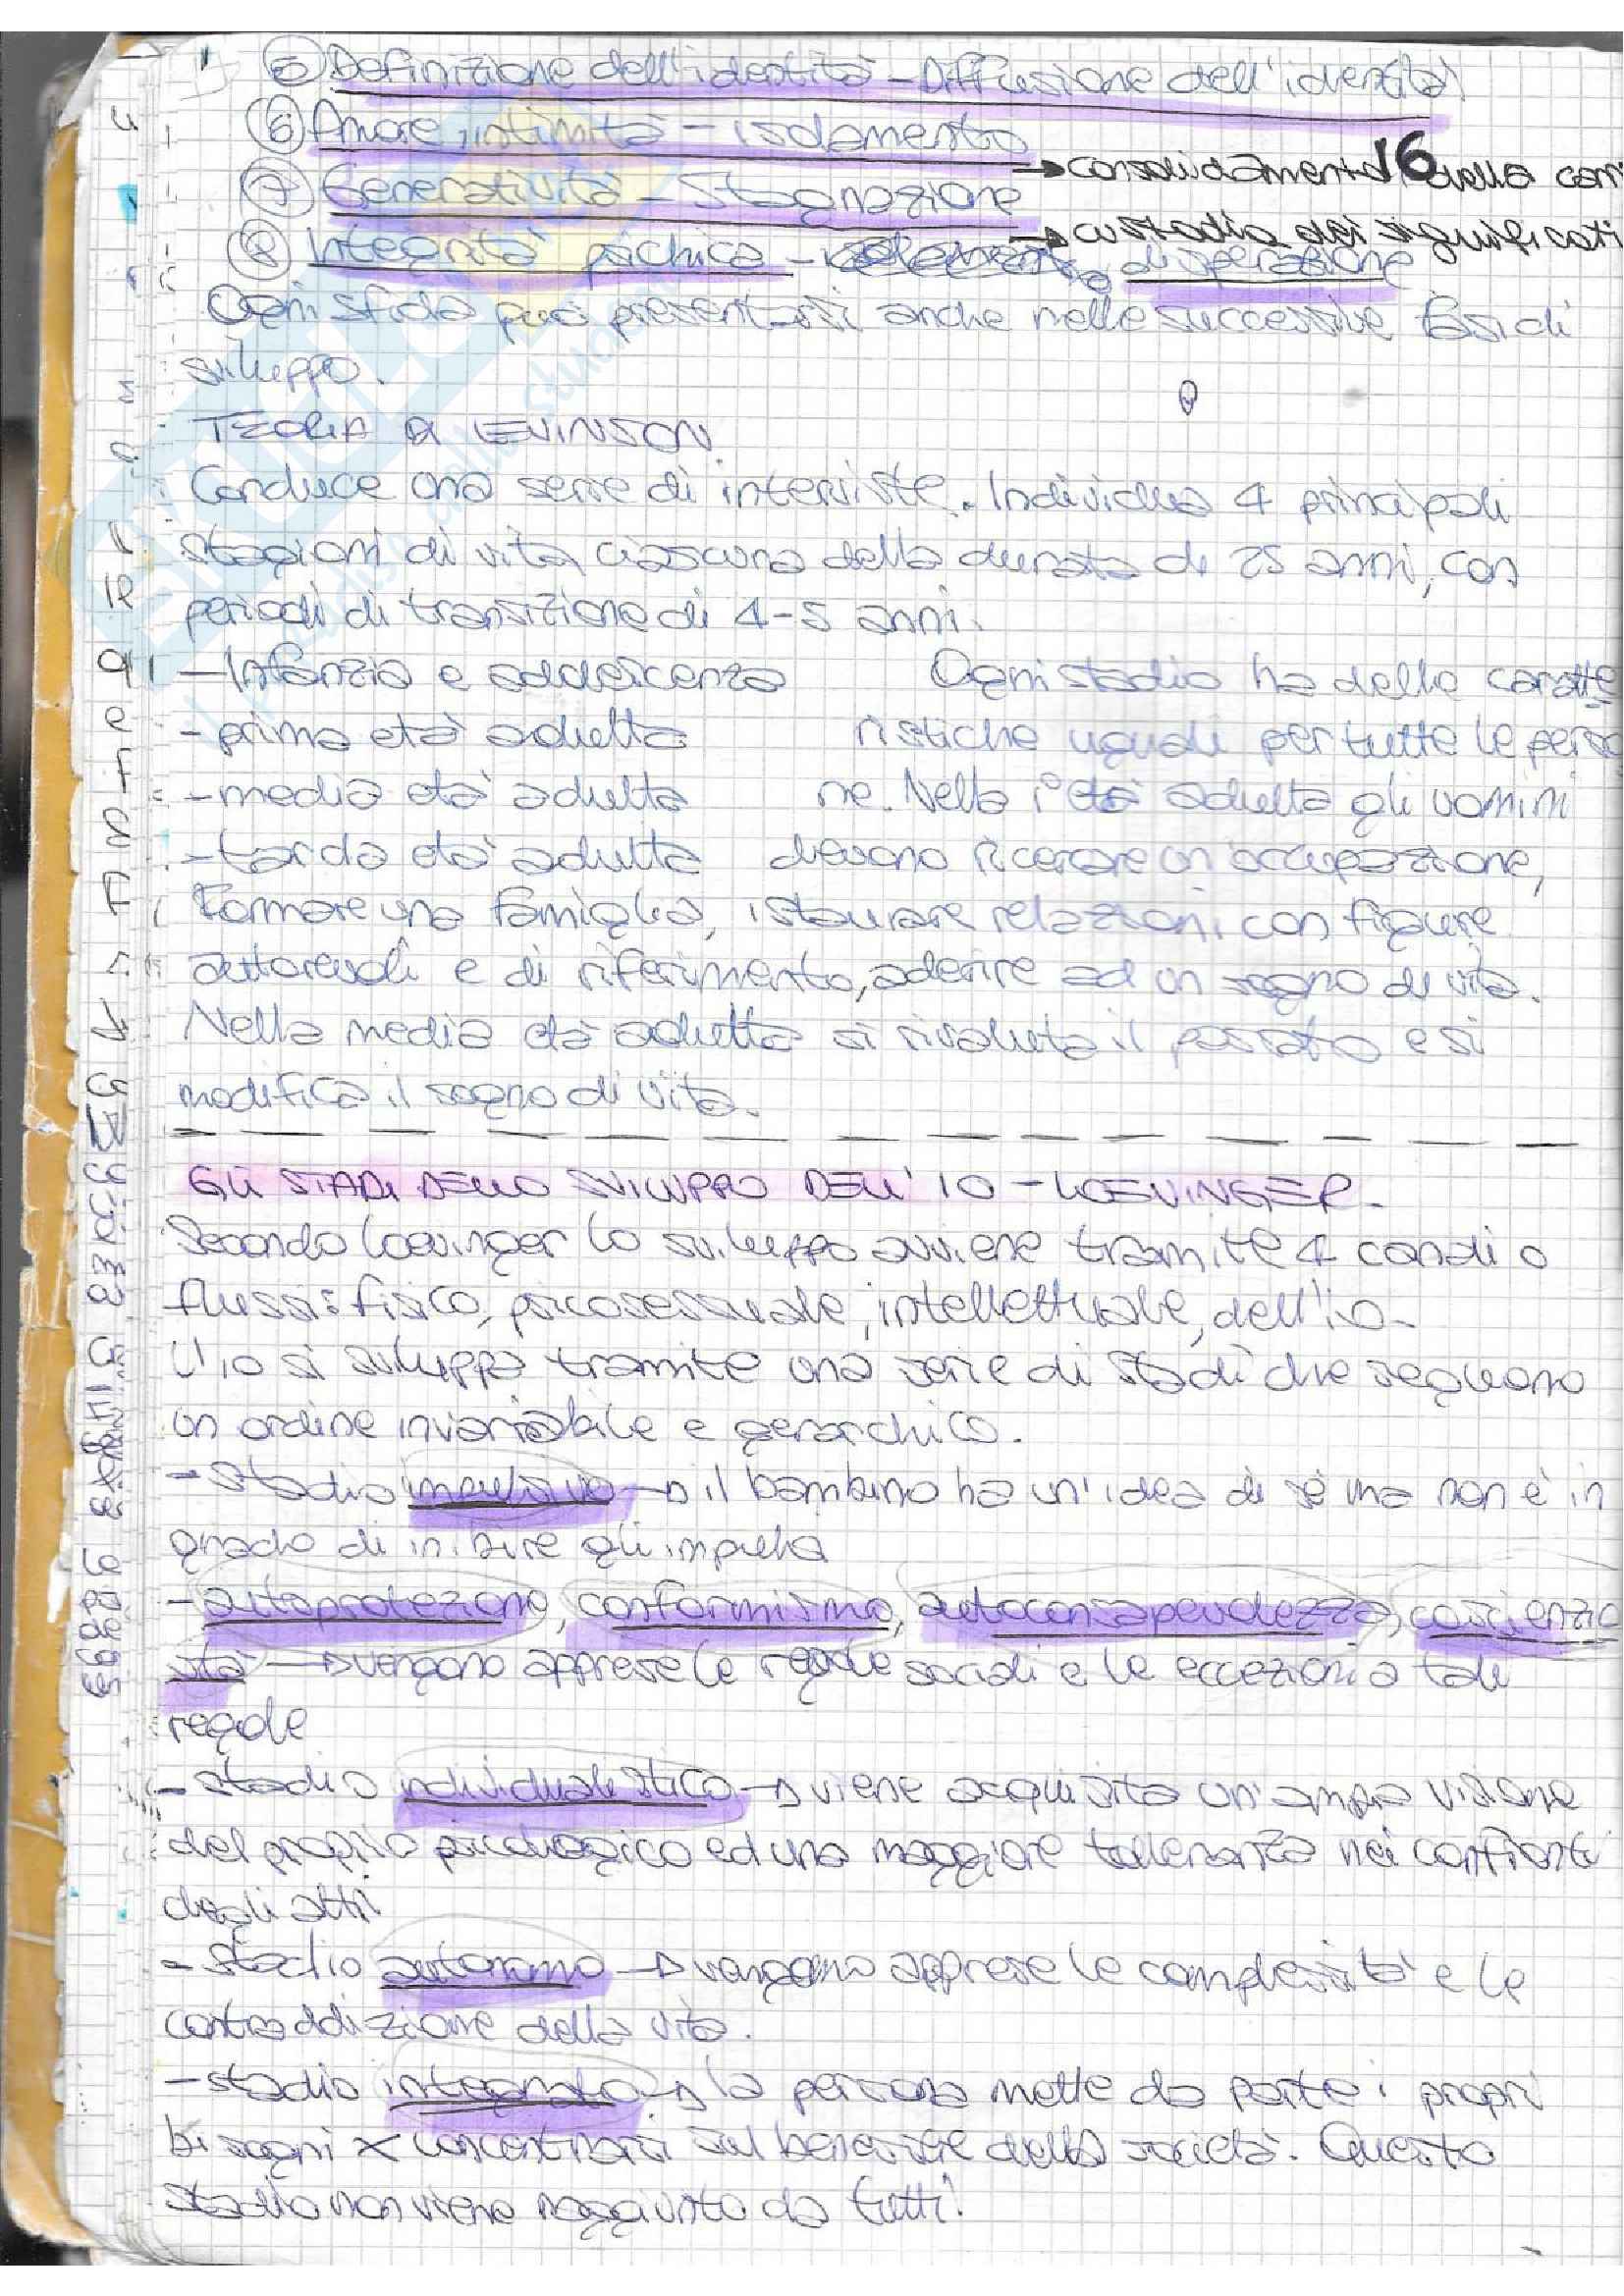 ⑤ Definizione dell'identità - Diffusione dell'identità
⑥ Amore, intimità - isolamento
→ consolidamento della carr
16
⑦ Generatività - Stagnazione
→ custodia dei significati
⑧ Integrità psichica - disperazione
Ogni sfida può presentarsi anche nelle successive fasi di
sviluppo.
TEORIA DI LEVINSON
Conduce una serie di interviste. Individua 4 principali
stagioni di vita, ciascuna della durata di 25 anni, con
periodi di transizione di 4-5 anni.
- Infanzia e adolescenza
- prima età adulta
- media età adulta
- tarda età adulta
Ogni stadio ha delle caratte
ristiche uguali per tutte le perso
ne. Nella 1° età adulta gli uomini
devono ricercare un'occupazione,
formare una famiglia, istaurare relazioni con figure
autorevoli e di riferimento, aderire ad un sogno di vita.
Nella media età adulta si rivaluta il passato e si
modifica il sogno di vita.
GLI STADI DELLO SVILUPPO DELL'IO - LOEVINGER.
Secondo Loevinger lo sviluppo avviene tramite 4 canali o
flussi: fisico, psicosessuale, intellettuale, dell'io.
L'io si sviluppa tramite una serie di stadi che seguono
un ordine invariabile e gerarchico.
- Stadio impulsivo → il bambino ha un'idea di sé ma non è in
grado di inibire gli impulsi
- autoprotezione, conformismo, autoconsapevolezza, coscienzio
sità → vengono apprese le regole sociali e le eccezioni a tali
regole
- stadio individualistico → viene acquisita un'ampia visione
del proprio psicologico ed una maggiore tolleranza nei confronti
degli altri
- Stadio autonomo → vengono apprese le complessità e le
contraddizione della vita.
- stadio integrato → la persona mette da parte i propri
bisogni x concentrarsi sul benessere della società. Questo
stadio non viene raggiunto da tutti.